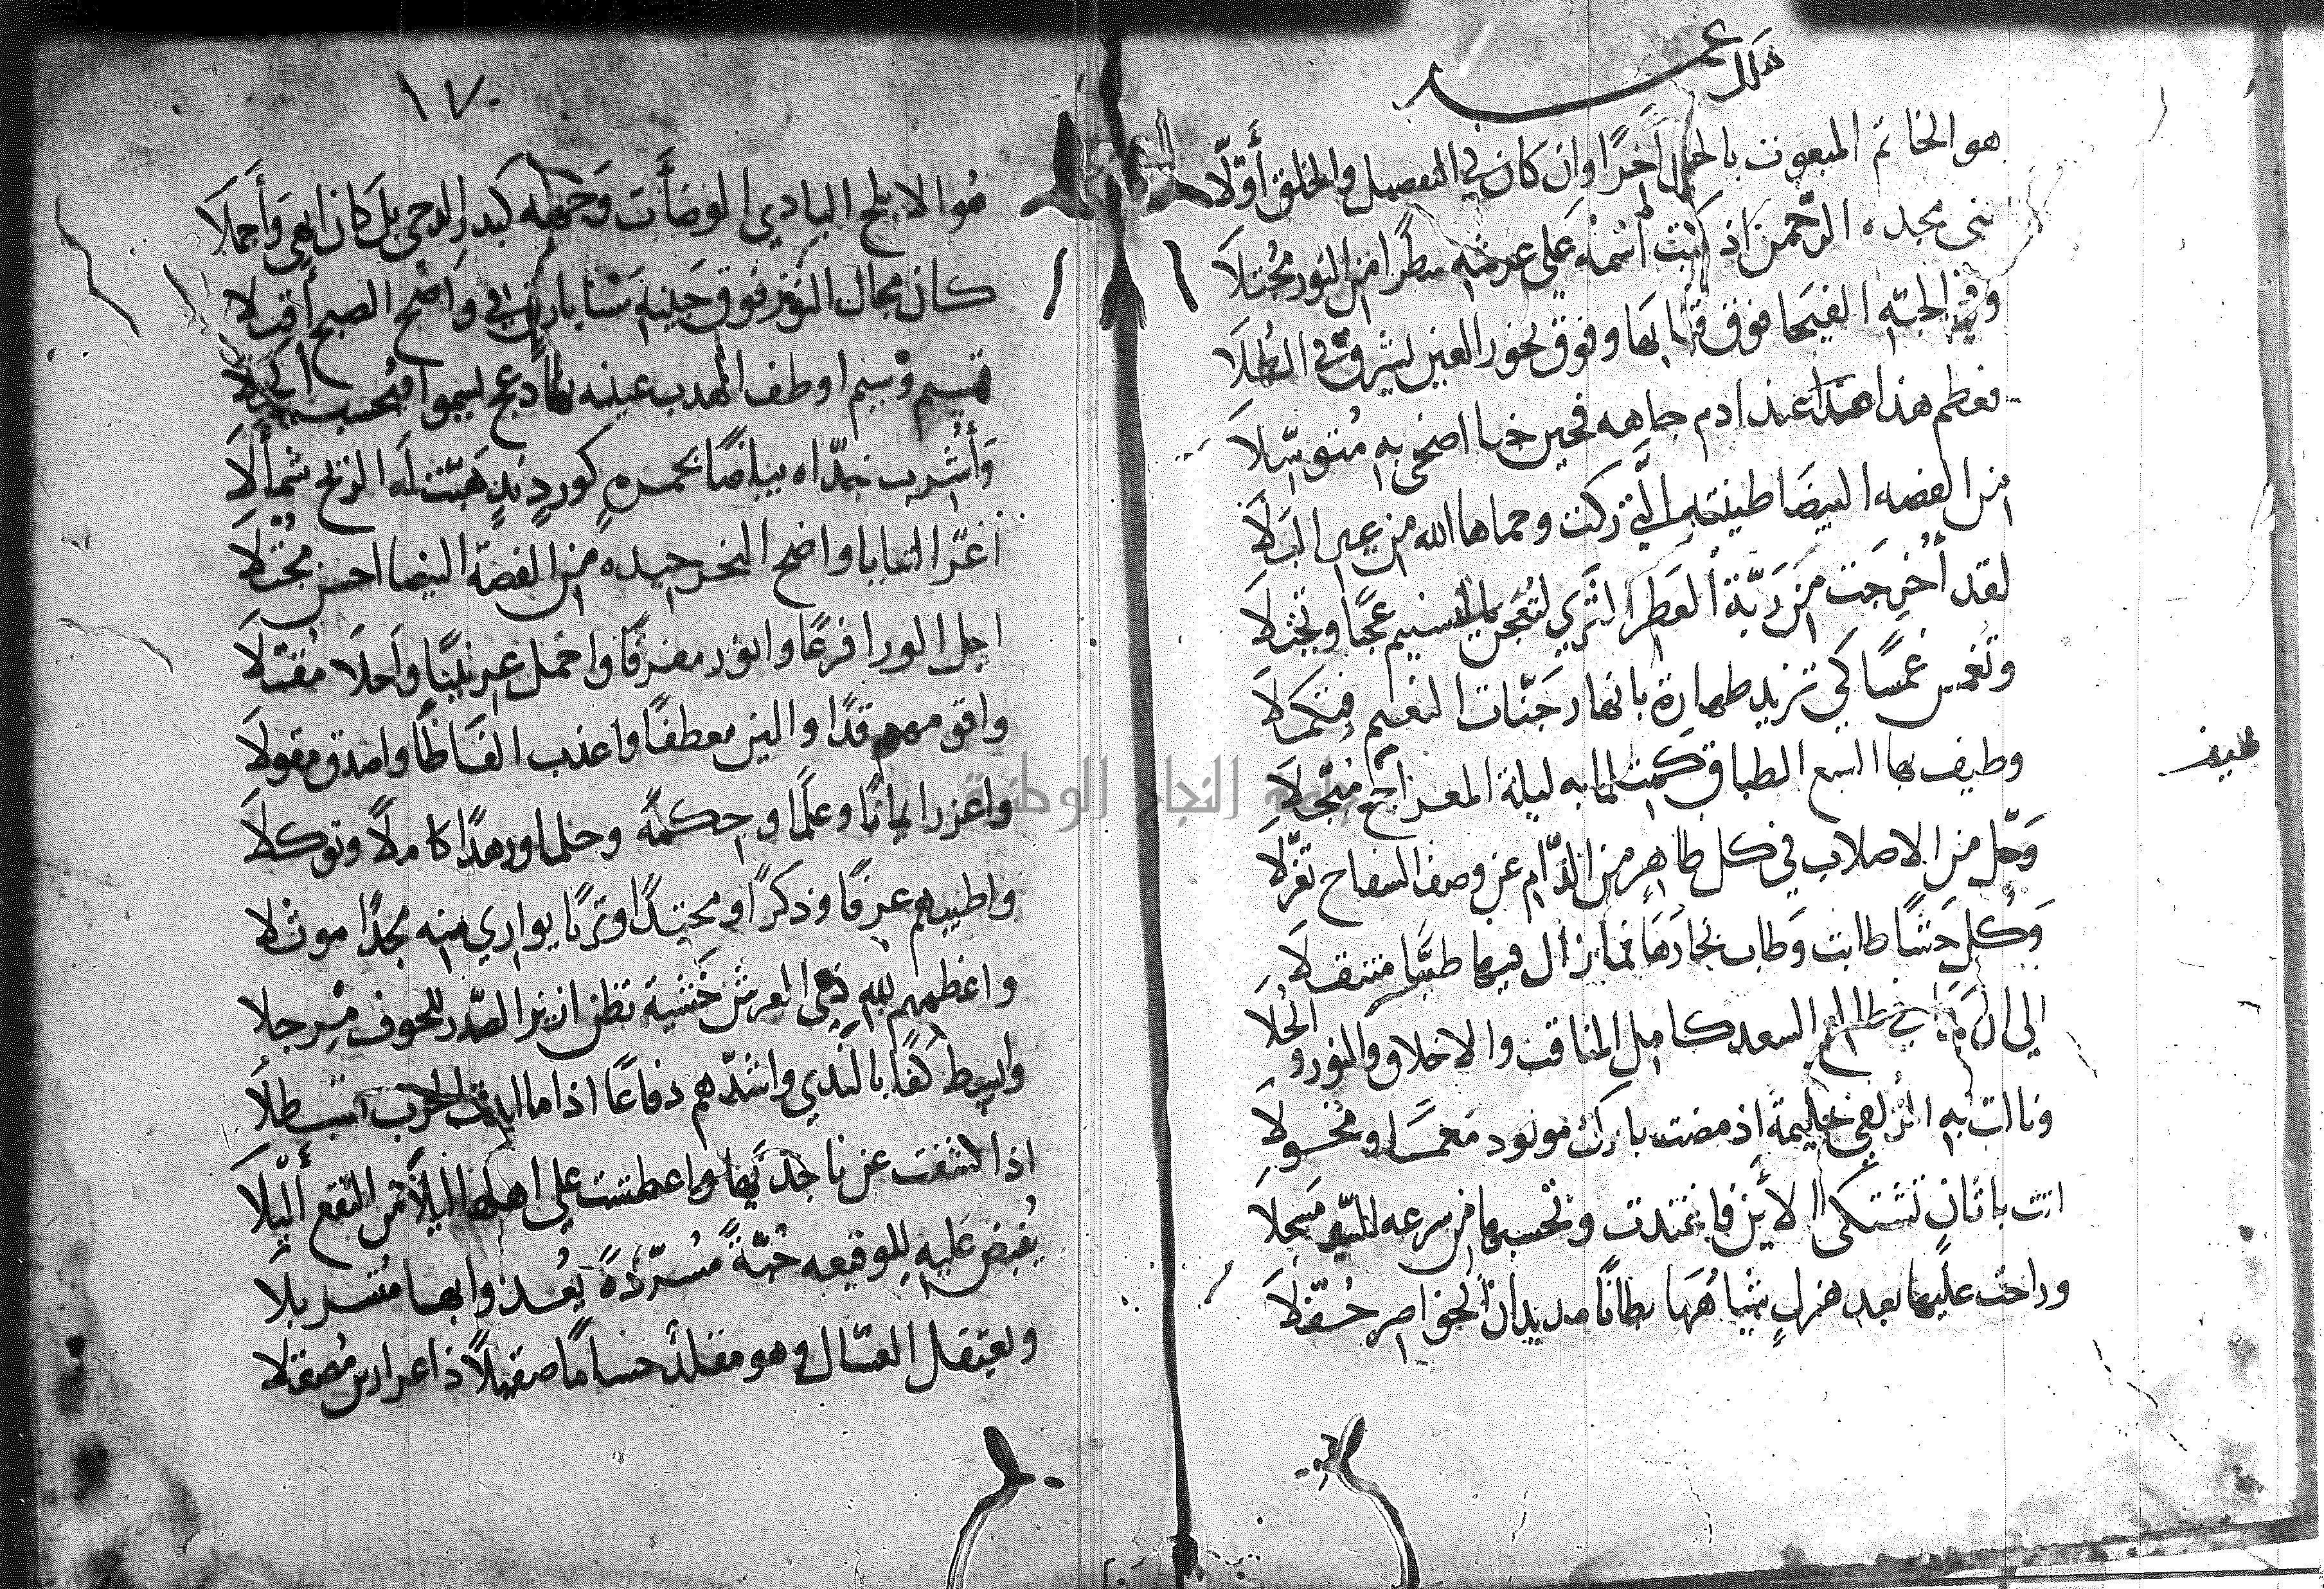 هو الخاتم المبعوث بالحق آخرًا وان كان في التفصيل والخلق أوّلا
بنى مجده الرحمن اذ كتب أسمه على عرشه سطرًا من النور مجتلا
وفي الجنه الفيحا فوق قبابها وفوق نحور العين يشرق في الطلَا
فعظم هذا عند ادم جاهه فحين خبا اضحى به متوسّلا
من الفضه البيضا طينته التي زكت وحماها الله من البلَا
لقد أخرجت من ربّة العطر الثرى لتعجن بالتسنيم عجنًا وتجبَلا
وتغمس غمسًا كي تزيد طهارة بانهار جنّات النعيم فتكمَلا
وطيف بها السبع الطباق كمثل ما به ليلة المعراج
طيف
وحّل من الاصلاب في كل طاهر من الذّام عن وصف السفاح تنزّلا
وكُل حشًا طابت وطاب نجارها فما زال فيها طيبًا متنقلَا
الى ان السعد كامل المناقب والاخلاق والنور والحُلَا
ونالت به الزلفى حليمة اذ مضت بابرك مولود مَعمَّا ومخولَا
اتت باتان تشتكي الأين فاغتدت وتحسبها من سرعه السّير مسحلا
وراحت عليها بعد هزلٍ شياهُهَا بطانًا مديدات الخواصر حُفّلَا
١٧
هُو الابلج البادي الوضأت وَجهه كبدر الدجى بل كان ابهى وَأجملَا
كان مجال النور فوق جبينه سَنا بارق في واضح الصبح أقبلا
قسيم وسيم اوطف الهدب عينه بها دعج
وَأشرب خدّاه بياضًا بحمرهٍ كوردٍ ندٍ هَبّت له الريح شمألَا
أغرّ الثنايا واضح النحر جيده من الفضّة البيضا احسن مجتلَا
اجل الورا فرعًا وانور مفرقًا واجمل عرنينًا وأحلَا مُقبّلَا
واقومهم قدًا والين معطفًا واعذب الفاظًا واصدق مقولَا
واغزر ايمانًا وعلمًا وحكمةً وحلما وزهدًا كاملًا وتوكلَا
واطيبهم عرفًا وذكرًا ومحتِدًا وتربًا يواري منه مجدًا موثلا
واعظمهم لله ذي العرش خَشية تظن ازيز الصّدر للخوف مِرجلا
وابسط كفًا بالندي واشدّهم دفاعًا اذا ما الحرب
اذا كشفت عن ناجذيها واعطشت على اهلها ليلًا من النقع أليَلَا
يُفيض عَليه للوقيعه جُنّةً مُسرّدةً يَغدوا بها مُتسربلَا
ويعتقل العسّال وهو مقلدٌ حسامًا صقيلًا ذا غرارين مُصقلا